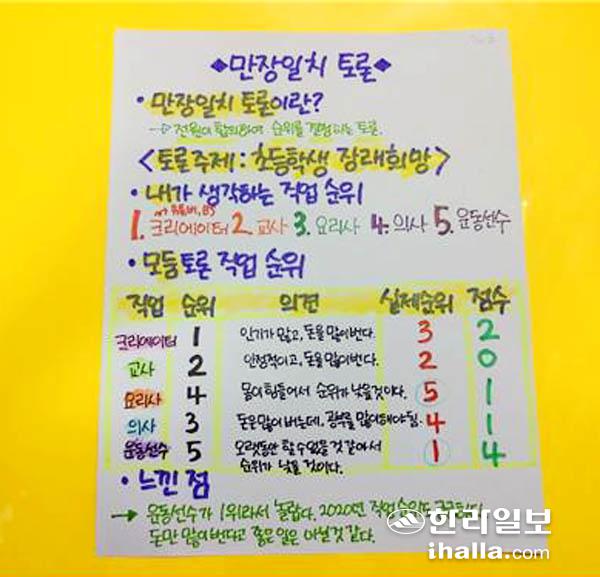 ◆만장일치 토론◆
• 만장일치 토론이란?
→ 전원이 합의하여 순위를 결정하는 토론.
<토론주제 : 초등학생 장래희망>
• 내가 생각하는 직업 순위
유튜버, BJ
1. 크리에이터 2. 교사 3. 요리사 4. 의사 5. 운동선수
• 모둠토론 직업 순위
직업 순위 의견 실제순위 점수
크리에이터 1 인기가 많고, 돈을 많이 번다. 3 2
교사 2 안정적이고, 돈을 많이번다. 2 0
요리사 4 몸이 힘들어서 순위가 낮을것이다. 5 1
의사 3 돈은 많이 버는데, 공부를 많이해야 됨. 4 1
운동선수 5 오랫동안 할 수 없을 것 같아서 순위가 낮을 것이다. 1 4
• 느낀 점
→ 운동선수가 1위라서 놀랍다. 2020년 직업 순위도
돈만 많이 번다고 좋은 일은 아닐것 같다.
한라일보
ihalla.com